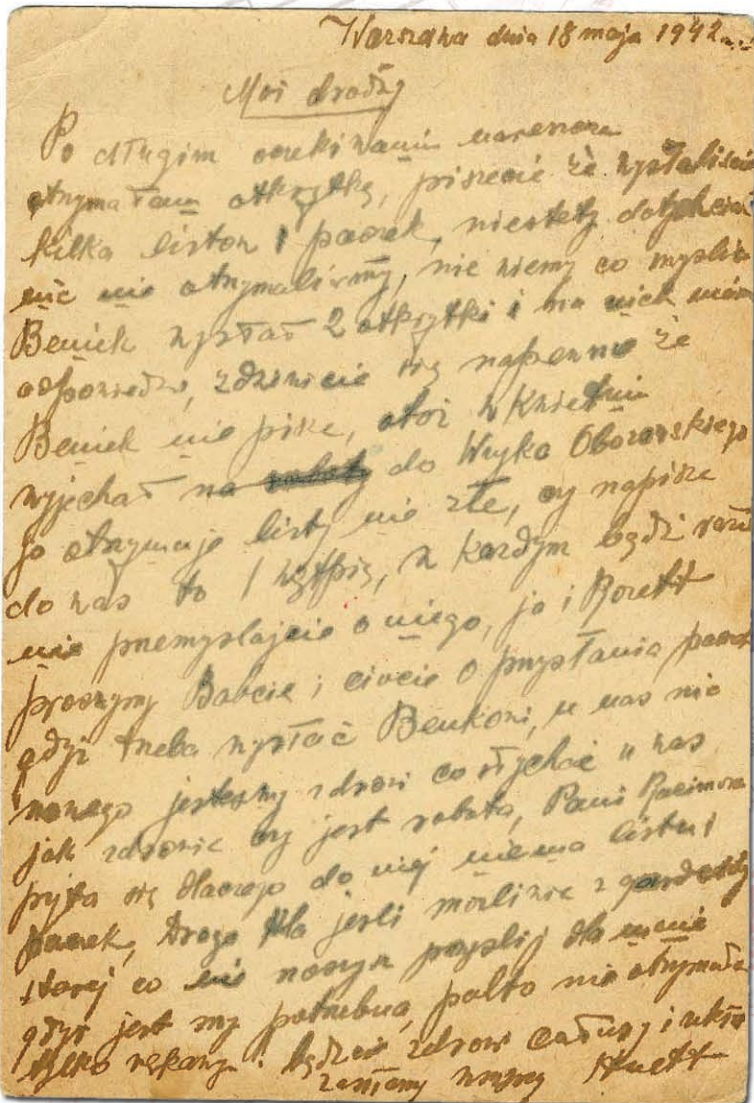 Warszawa dnia 18 maja 1942
Moi drodzy
Po długim oczekiwaniu nareszcie
otrzymałam otkrytkę, piszecie że wysłaliście
kilka listow i paczek, niestety dotychczas
nic nie otrzymaliśmy, nie wiemy co myślić
Beniek wysłał 2 otkrytki i na nich niema
odpowiedzi, zdziwicie się napewno że
Beniek nie pisze, otoż w kwietniu
wyjechał na do Wujka Oborowskiego
jo otrzymuje listy nie złe, czy napisze
do was to wątpię, w kazdym bądź razie
nie przemyslajcie o niego, jo i
prosymy Babcie i ciocie o przysłania paczek
gdyż trzeba wysłać Benkowi, u nas nic
nowego jestesmy zdrowi co słychać u was
jak zdrowie czy jest robota, Pani
pyta się dlaczego do niej niema listu i
paczek, Drogo jesli możliwie z
starej co nie noszys przyslij dla mnie
gdyż jest my potrzebua, palto nie otrzymała
tylko rękawy. bądzcie zdrowi całusy i
zaniemy